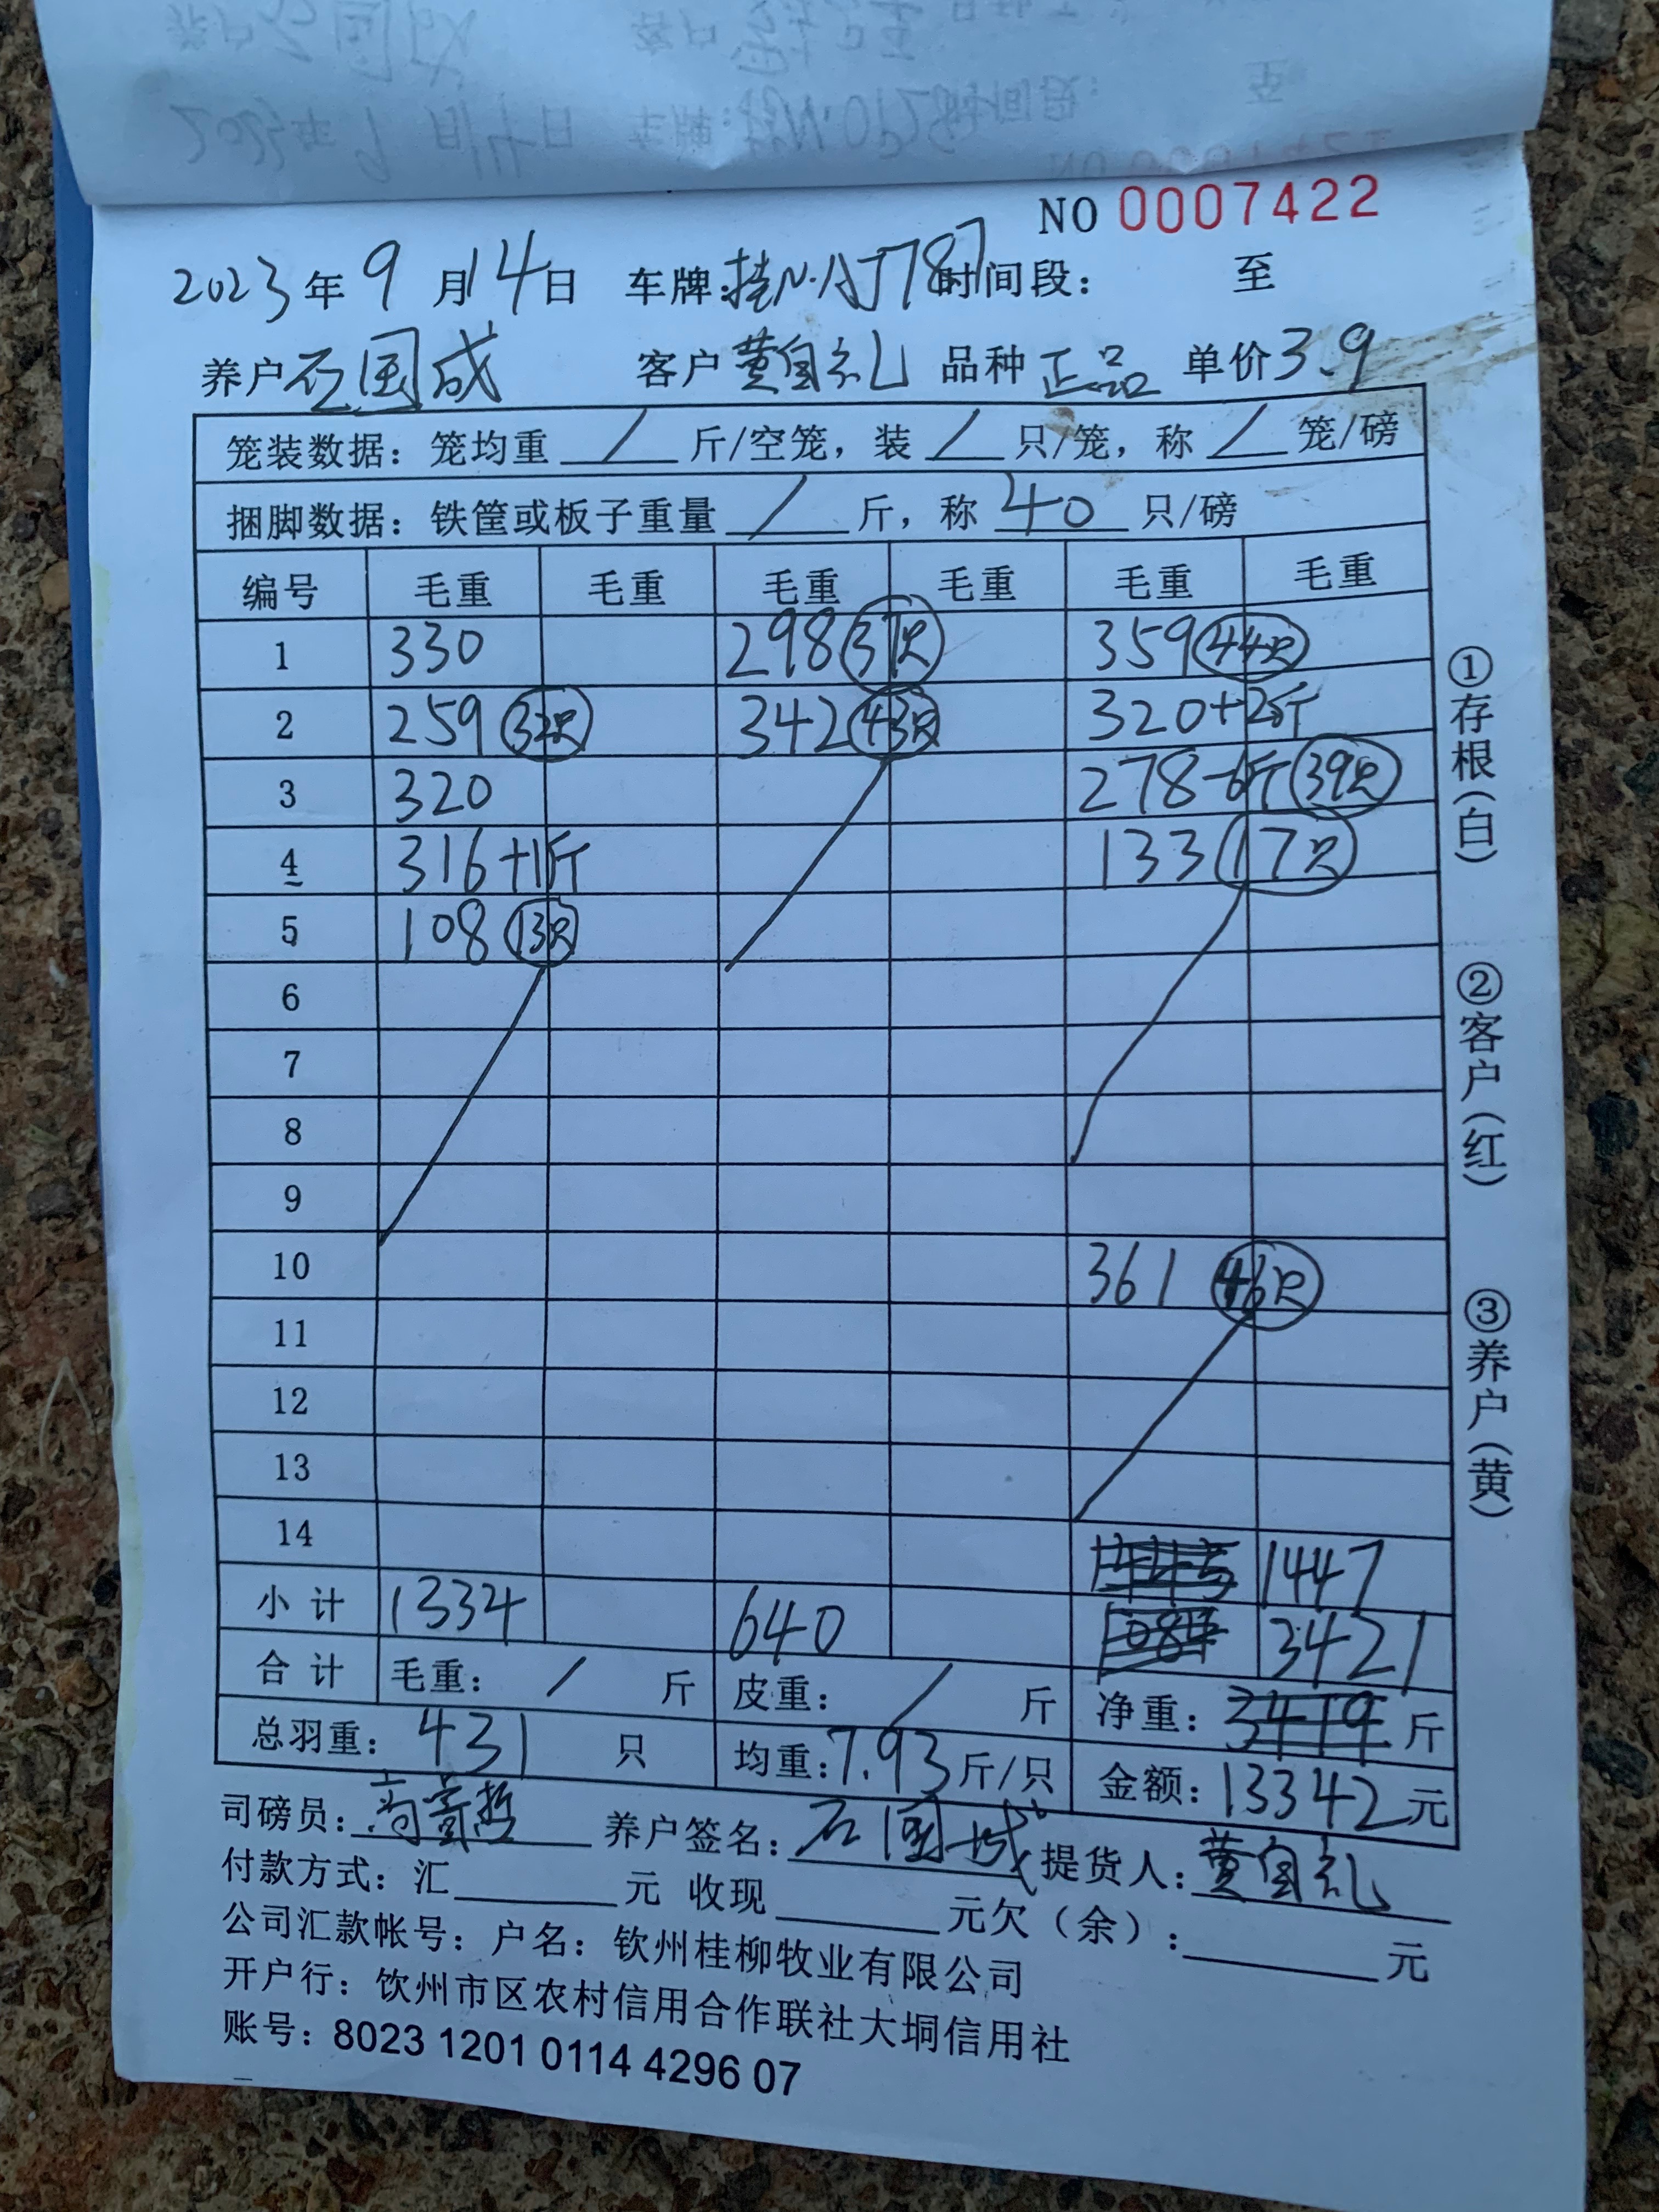 NO 0007422
2023年9月14日 车牌:桂N·AJ787 时间段: 至
养户 石国成 客户 黄自礼 品种 正品 单价3.9
笼装数据: 笼均重 / 斤/空笼, 装 / 只/笼, 称 / 笼/磅
捆脚数据: 铁筐或板子重量 / 斤, 称 40 只/磅
编号 毛重 毛重 毛重 毛重 毛重 毛重
1 330 298 37只 359 44只
2 259 32只 342 43只 320+2斤
3 320 278-6斤 39只
4 316+1斤 133 17只
5 108 13只
6
7
8
9
10 361 46只
11
12
13
14 1447
小计 1334 640 3421
合计 毛重: / 斤 皮重: / 斤 净重: 3419 斤
总羽重: 431 只 均重:7.93斤/只 金额:13342元
司磅员: 养户签名: 石国成 提货人: 黄自礼
付款方式: 汇 元 收现 元欠(余): 元
公司汇款帐号: 户名: 钦州桂柳牧业有限公司
开户行: 钦州市区农村信用合作联社大垌信用社
账号: 8023 1201 0114 4296 07
①存根(白)
②客户(红)
③养户(黄)